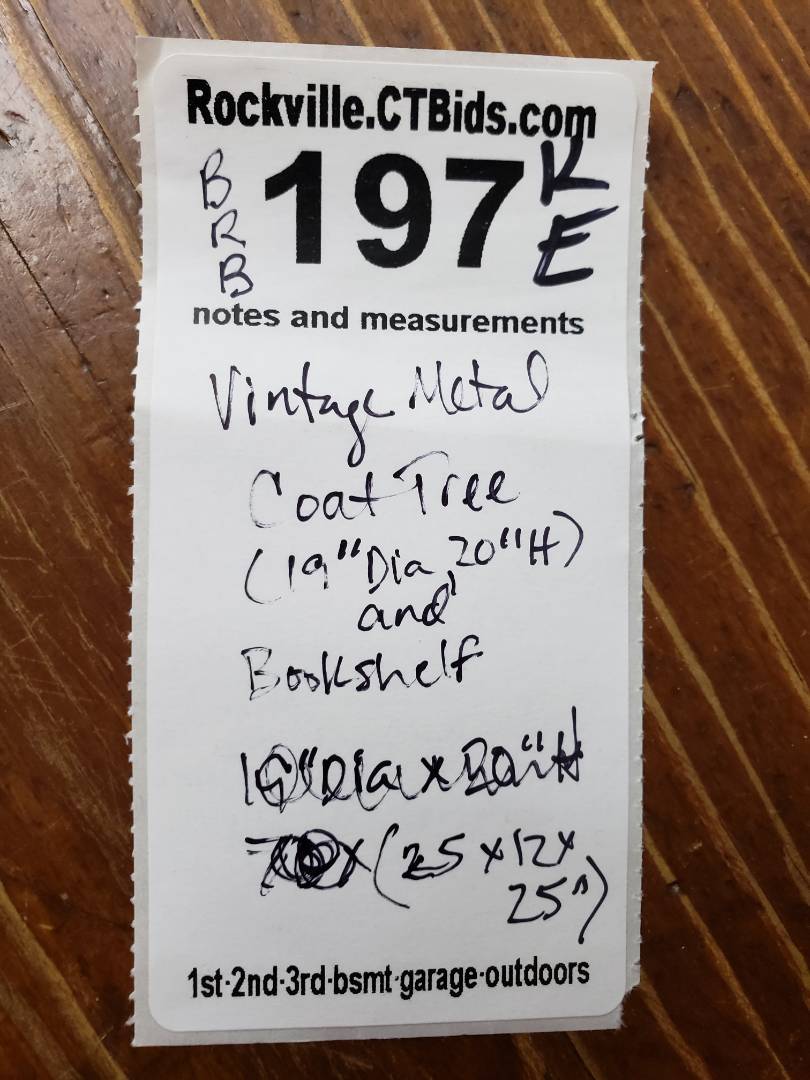 Rockville.CTBids.com
BRB 197 KE
notes and measurements
Vintage Metal
Coat Tree
(19"Dia, 20"H)
and
Bookshelf
"Dia x 20"H
(25 x 12 x
25")
1st·2nd·3rd·bsmt·garage·outdoors